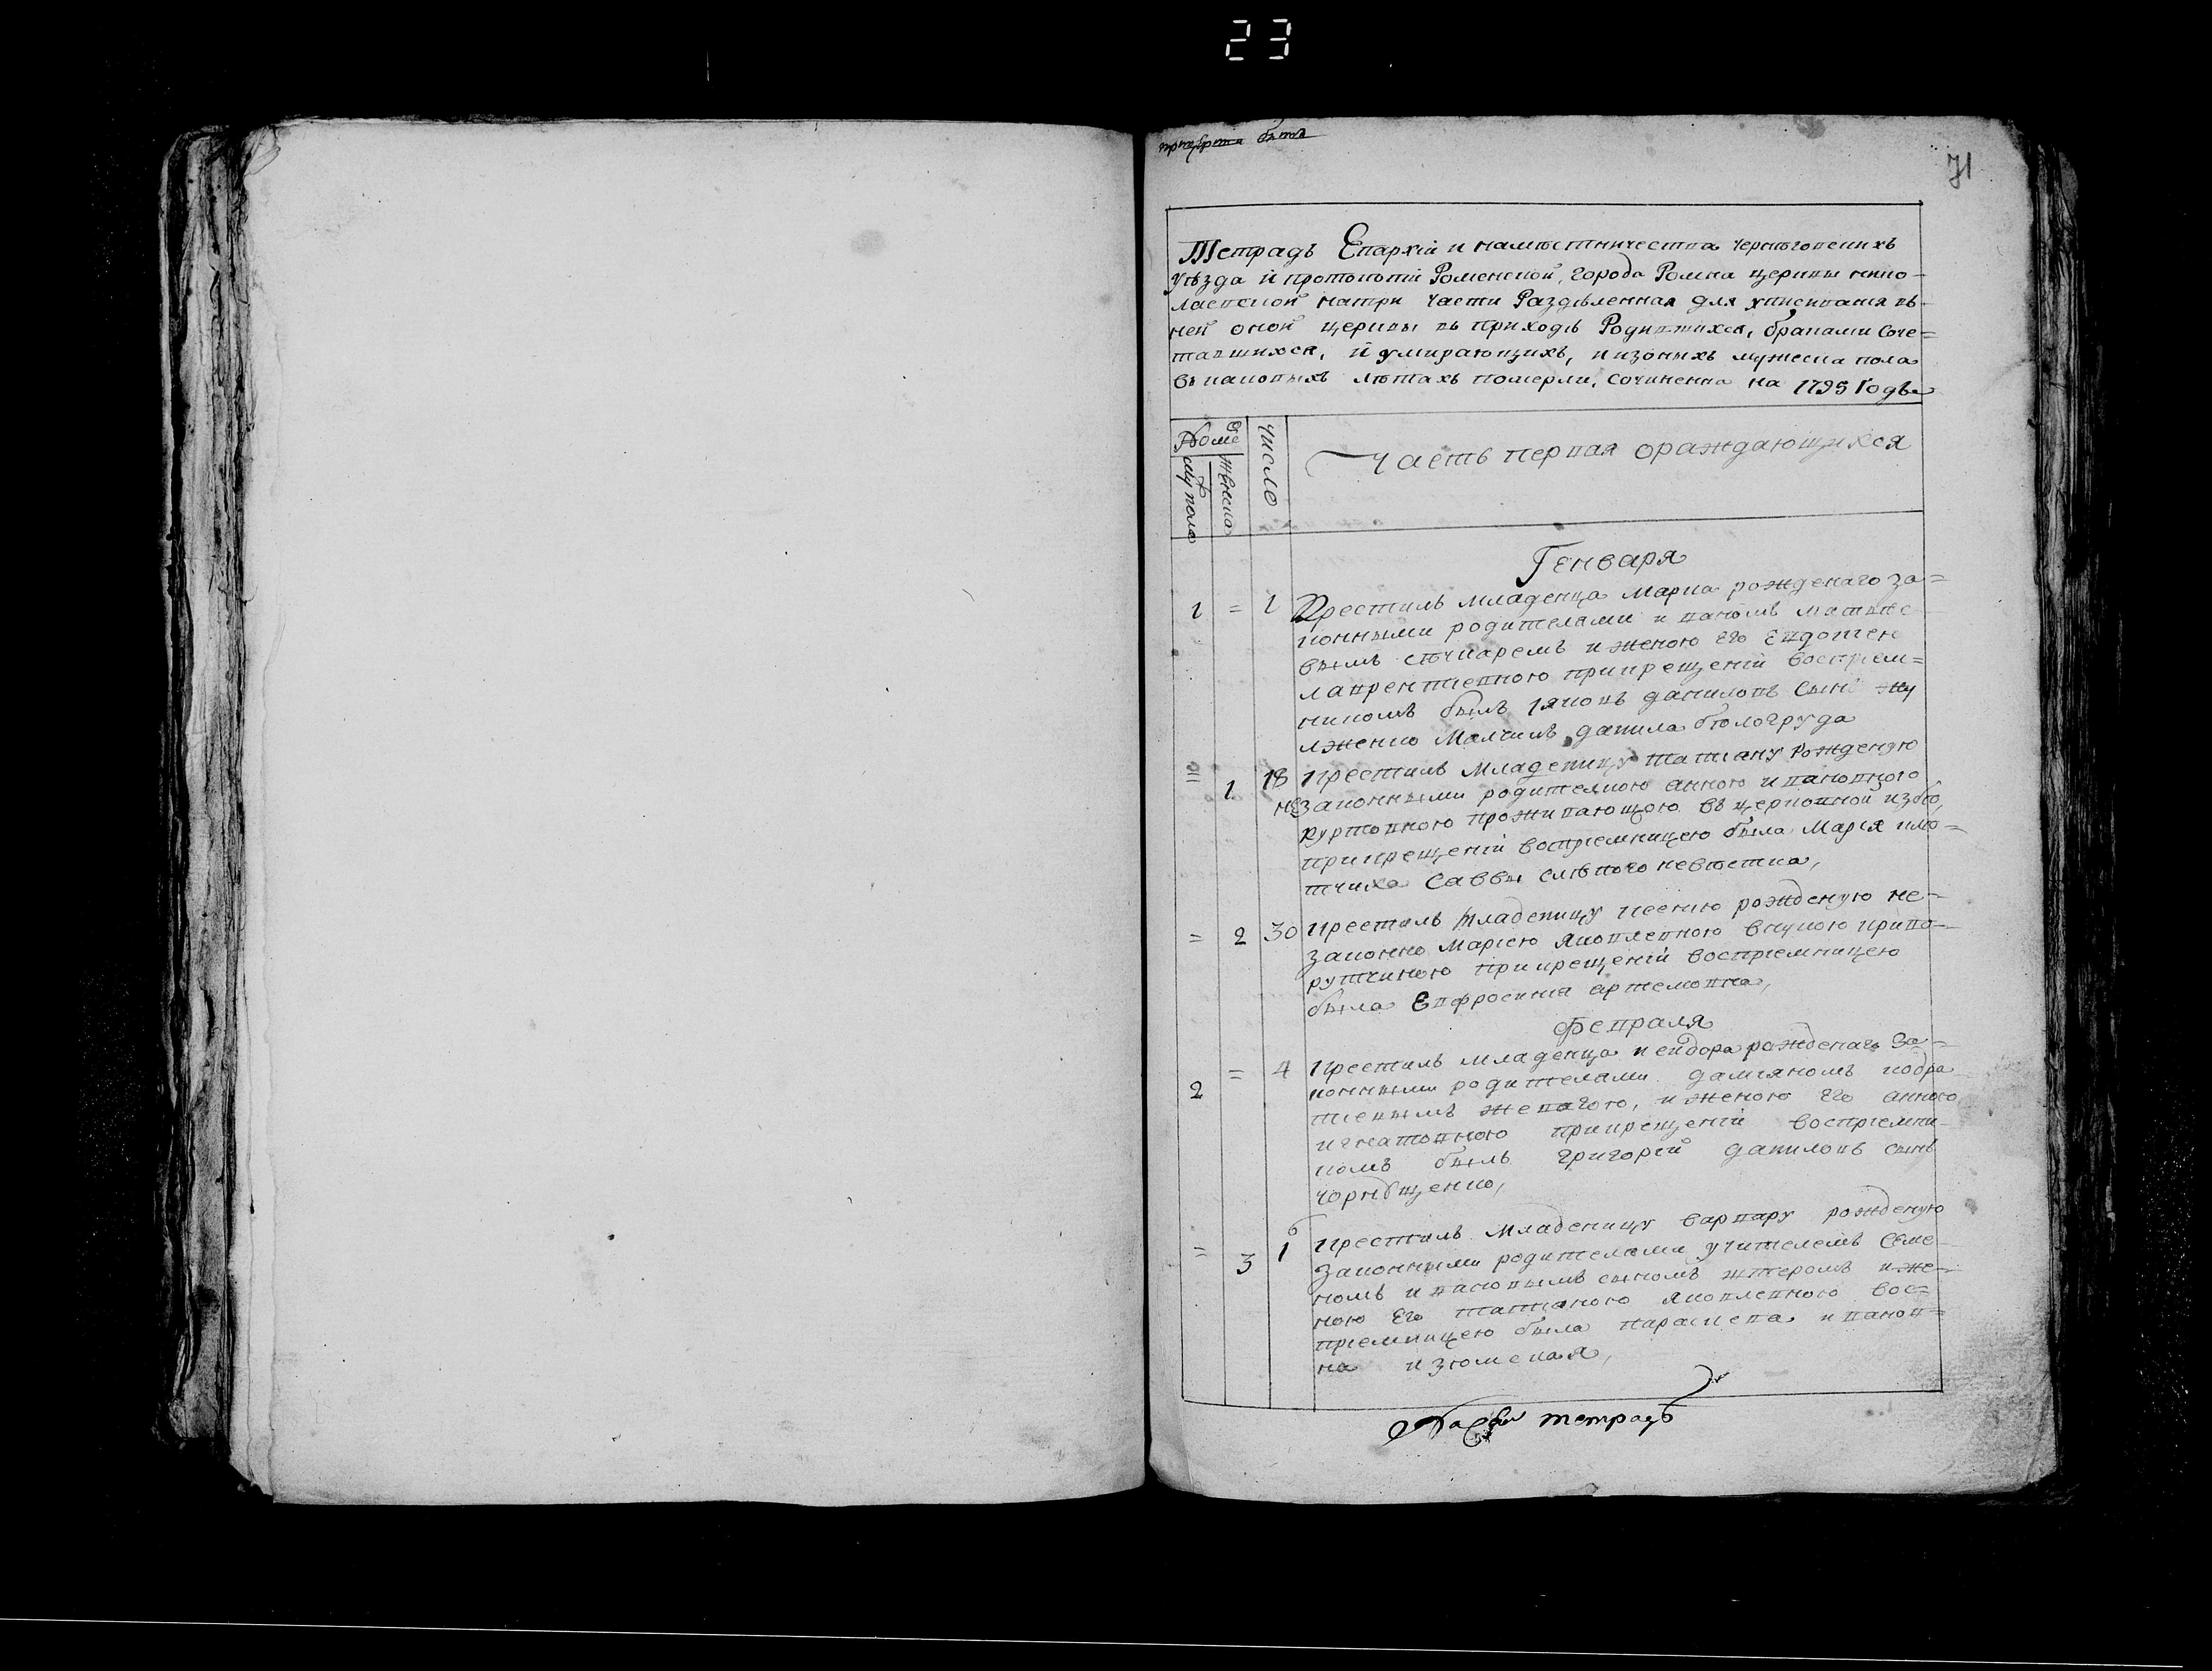 23
71
Тетрадь Епархїи и намѣстничества черниговскихъ
уѣзда и протопопїи Роменской, города Ромна церкви нико-
лаевской натри части Раздѣленная для уписивания въ
ней оной церквы въ приходѣ Родившихся, браками соче-
тавшихся, и умирающихъ, и изоныхъ мужеска пола
въ каковыхъ лѣтахъ померли, сочиненна на 1795 годъ
числе
муж пола
женска
Часть первая ораждающихся
Генваря
1 = 1 Крестилъ младенца марка рожденаго за=
конными родителами иваномъ матвѣе
вымъ стчкаремъ и женою его евдокиею
лаврентиевною прикрещенїи восприем=
никомъ былъ яковъ даниловъ сынъ
малчикъ данила бѣлогруда
= 1 18 крестилъ младеницу татиану рожденую
незаконными родителкою анною ивановною
проживающою въ церковной избѣ,
прикрещенїи восприемницею была марїя
саввы слѣпого невѣстка,
= 2 30 крестилъ младеницу ксению рожденую не=
законно марїею яковлевною внукою криво-
ручкиною прикрещенїи восприемницею
была Евфросиния артемовна,
Февраля
2 = 4 крестилъ младенца исидора рожденаго за=
конными родителами дамияномъ кодра
тиевымъ жевагою, и женою его анною
игнатовною прикрещенїи восприемни-
комъ былъ григорїй даниловъ сынъ
= 3 16 крестилъ младеницу варвару рожденую
законными родителами учителемъ семе-
номъ ивановымъ сыномъ и же-
ною его татианою яковлевною вос=
приемницею была параскева иванов=
на изюмская,
тетрадь